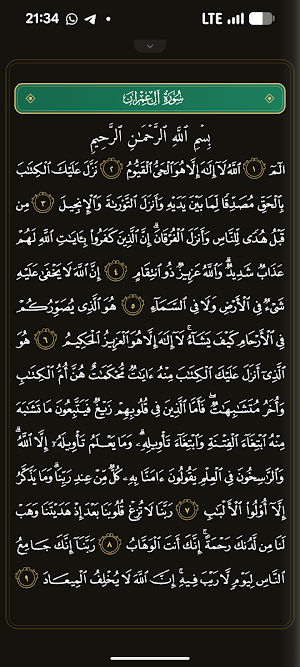 21:34 LTE
سُورَةُ آلِ عِمۡرَانَ
بِسۡمِ ٱللَّهِ ٱلرَّحۡمَٰنِ ٱلرَّحِيمِ
الٓمٓ ١ ٱللَّهُ لَآ إِلَٰهَ إِلَّا هُوَ ٱلۡحَيُّ ٱلۡقَيُّومُ ٢ نَزَّلَ عَلَيۡكَ ٱلۡكِتَٰبَ
بِٱلۡحَقِّ مُصَدِّقٗا لِّمَا بَيۡنَ يَدَيۡهِ وَأَنزَلَ ٱلتَّوۡرَىٰةَ وَٱلۡإِنجِيلَ ٣ مِن
قَبۡلُ هُدٗى لِّلنَّاسِ وَأَنزَلَ ٱلۡفُرۡقَانَۗ إِنَّ ٱلَّذِينَ كَفَرُواْ بِـَٔايَٰتِ ٱللَّهِ لَهُمۡ
عَذَابٞ شَدِيدٞۗ وَٱللَّهُ عَزِيزٞ ذُو ٱنتِقَامٍ ٤ إِنَّ ٱللَّهَ لَا يَخۡفَىٰ عَلَيۡهِ
شَيۡءٞ فِي ٱلۡأَرۡضِ وَلَا فِي ٱلسَّمَآءِ ٥ هُوَ ٱلَّذِي يُصَوِّرُكُمۡ
فِي ٱلۡأَرۡحَامِ كَيۡفَ يَشَآءُۚ لَآ إِلَٰهَ إِلَّا هُوَ ٱلۡعَزِيزُ ٱلۡحَكِيمُ ٦ هُوَ
ٱلَّذِيٓ أَنزَلَ عَلَيۡكَ ٱلۡكِتَٰبَ مِنۡهُ ءَايَٰتٞ مُّحۡكَمَٰتٌ هُنَّ أُمُّ ٱلۡكِتَٰبِ
وَأُخَرُ مُتَشَٰبِهَٰتٞۖ فَأَمَّا ٱلَّذِينَ فِي قُلُوبِهِمۡ زَيۡغٞ فَيَتَّبِعُونَ مَا تَشَٰبَهَ
مِنۡهُ ٱبۡتِغَآءَ ٱلۡفِتۡنَةِ وَٱبۡتِغَآءَ تَأۡوِيلِهِۦۖ وَمَا يَعۡلَمُ تَأۡوِيلَهُۥٓ إِلَّا ٱللَّهُۗ
وَٱلرَّٰسِخُونَ فِي ٱلۡعِلۡمِ يَقُولُونَ ءَامَنَّا بِهِۦ كُلّٞ مِّنۡ عِندِ رَبِّنَاۗ وَمَا يَذَّكَّرُ
إِلَّآ أُوْلُواْ ٱلۡأَلۡبَٰبِ ٧ رَبَّنَا لَا تُزِغۡ قُلُوبَنَا بَعۡدَ إِذۡ هَدَيۡتَنَا وَهَبۡ
لَنَا مِن لَّدُنكَ رَحۡمَةًۚ إِنَّكَ أَنتَ ٱلۡوَهَّابُ ٨ رَبَّنَآ إِنَّكَ جَامِعُ
ٱلنَّاسِ لِيَوۡمٖ لَّا رَيۡبَ فِيهِۚ إِنَّ ٱللَّهَ لَا يُخۡلِفُ ٱلۡمِيعَادَ ٩